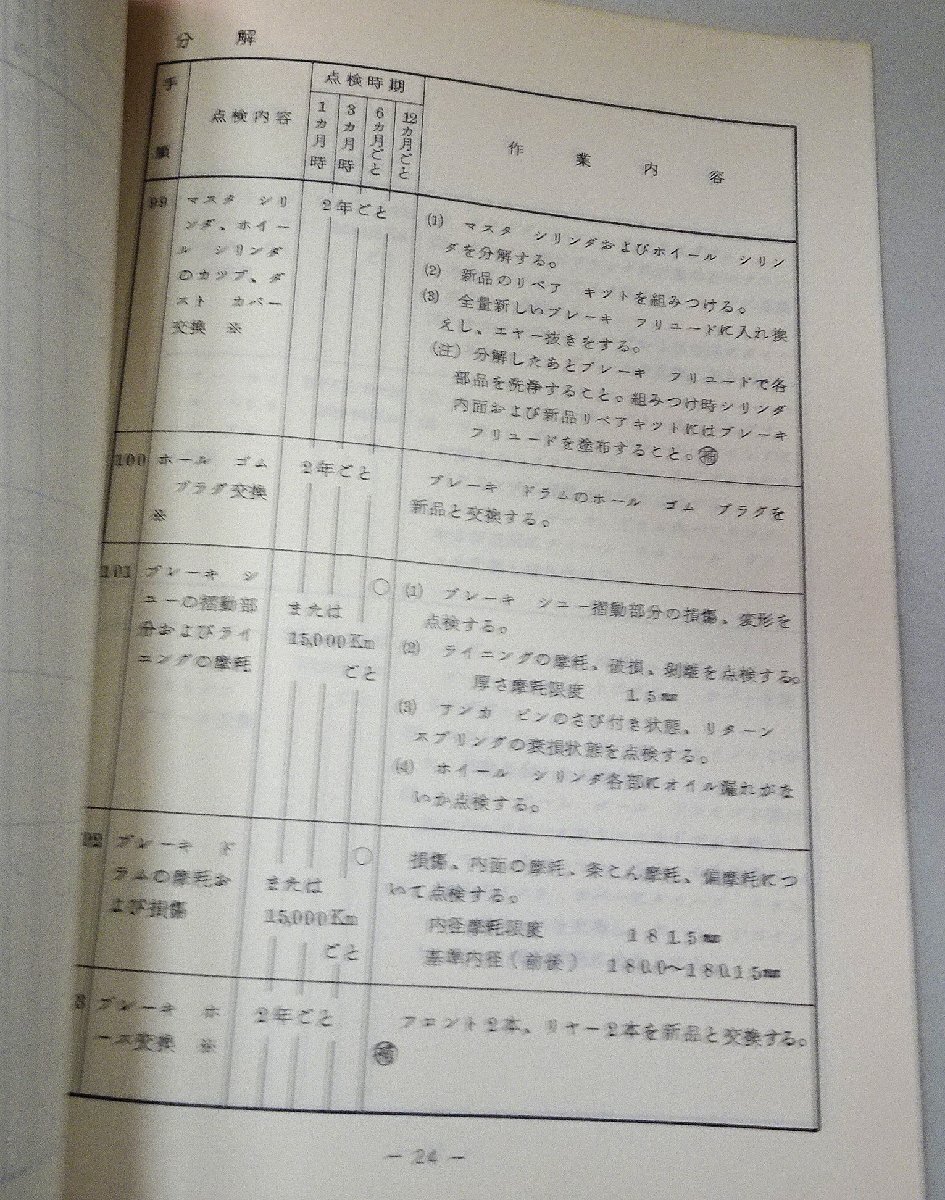 分　解
手順
点検内容
点検時期
1カ月時
3カ月時
6カ月ごと
12カ月ごと
作　業　内　容
99
マスタ　シリ
ンダ、ホイー
ル　シリンダ
のカップ、ダ
スト　カバー
交換　※
2年ごと
(1)　マスタ　シリンダおよびホイール　シリン
ダを分解する。
(2)　新品のリペア　キットを組みつける。
(3)　全量新しいブレーキ　フリュードに入れ換
えし、エヤー抜きをする。
(注)　分解したあとブレーキ　フリュードで各
部品を洗浄すること。組みつけ時シリンダ
内面および新品リペアキットにはブレーキ
フリュードを塗布すること。㊝
100
ホール　ゴム
プラグ交換
※
2年ごと
ブレーキ　ドラムのホール　ゴム　プラグを
新品と交換する。
101
ブレーキ　シ
ューの摺動部
分およびライ
ニングの摩耗
○
または
15,000Km
ごと
(1)　ブレーキ　シュー摺動部分の損傷、変形を
点検する。
(2)　ライニングの摩耗、破損、剝離を点検する。
厚さ摩耗限度　1.5㎜
(3)　アンカ　ピンのさび付き状態、リターン
スプリングの衰損状態を点検する。
(4)　ホイール　シリンダ各部にオイル漏れがな
いか点検する。
ブレーキ　ド
ラムの摩耗お
よび損傷
○
または
15,000Km
ごと
損傷、内面の摩耗、条こん摩耗、偏摩耗につ
いて点検する。
内径摩耗限度　181.5㎜
基準内径（前後）　180.0～180.15㎜
3
ブレーキ　ホ
ース交換　※
2年ごと
フロント2本、リヤー2本を新品と交換する。
－ 24 －